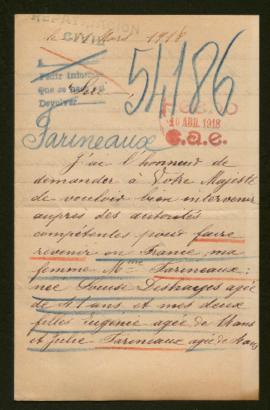 REPATRIACION
CIVIL
Mars 1918
Pedir informes
que se
Devolver
54186
HECHO
10 ABR. 1918
C.a.e.
Parineaux
J'ai l'honneur de
demander à Votre Majesté
de vouloir bien intervenir
auprès des autorités
compétentes pour faire
revenir en France, ma
femme Mme Parineaux;
née Louise Deshayes agée
de 41 ans et mes deux
filles Eugénie agée de ans
et Julie Parineaux agée de ans